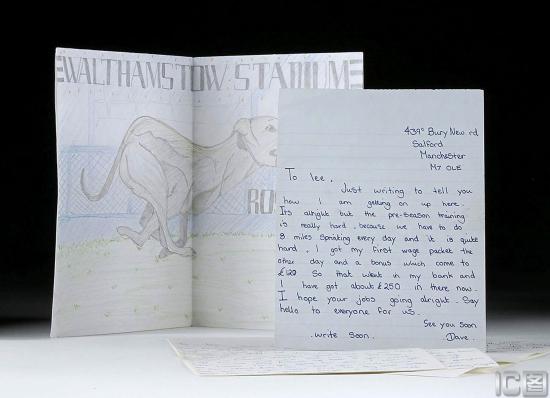 WALTHAMSTOW STADIUM
RO
439ᴬ Bury New rd
Salford
Manchester
M7 OLE
To lee,
Just writing to tell you
how I am getting on up here.
Its alright but the pre-season training
is really hard, because we have to do
8 miles sprinting every day and it is quite
hard, I got my first wage packet the
other day and a bonus which come to
£120 So that went in my bank and
I have got about £250 in there now.
I hope your jobs going alright. Say
hello to everyone for us.
See you soon
.write soon. Dave.
IC图